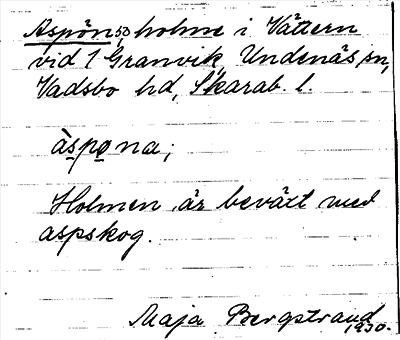 Aspön, so holme i Vättern
vid 1 Granvik, Undenäs sn,
Vadsbo hd, Skarab. l.
àspǫna;
Holmen är beväxt med
aspskog.
Maja Bergstrand
1930.